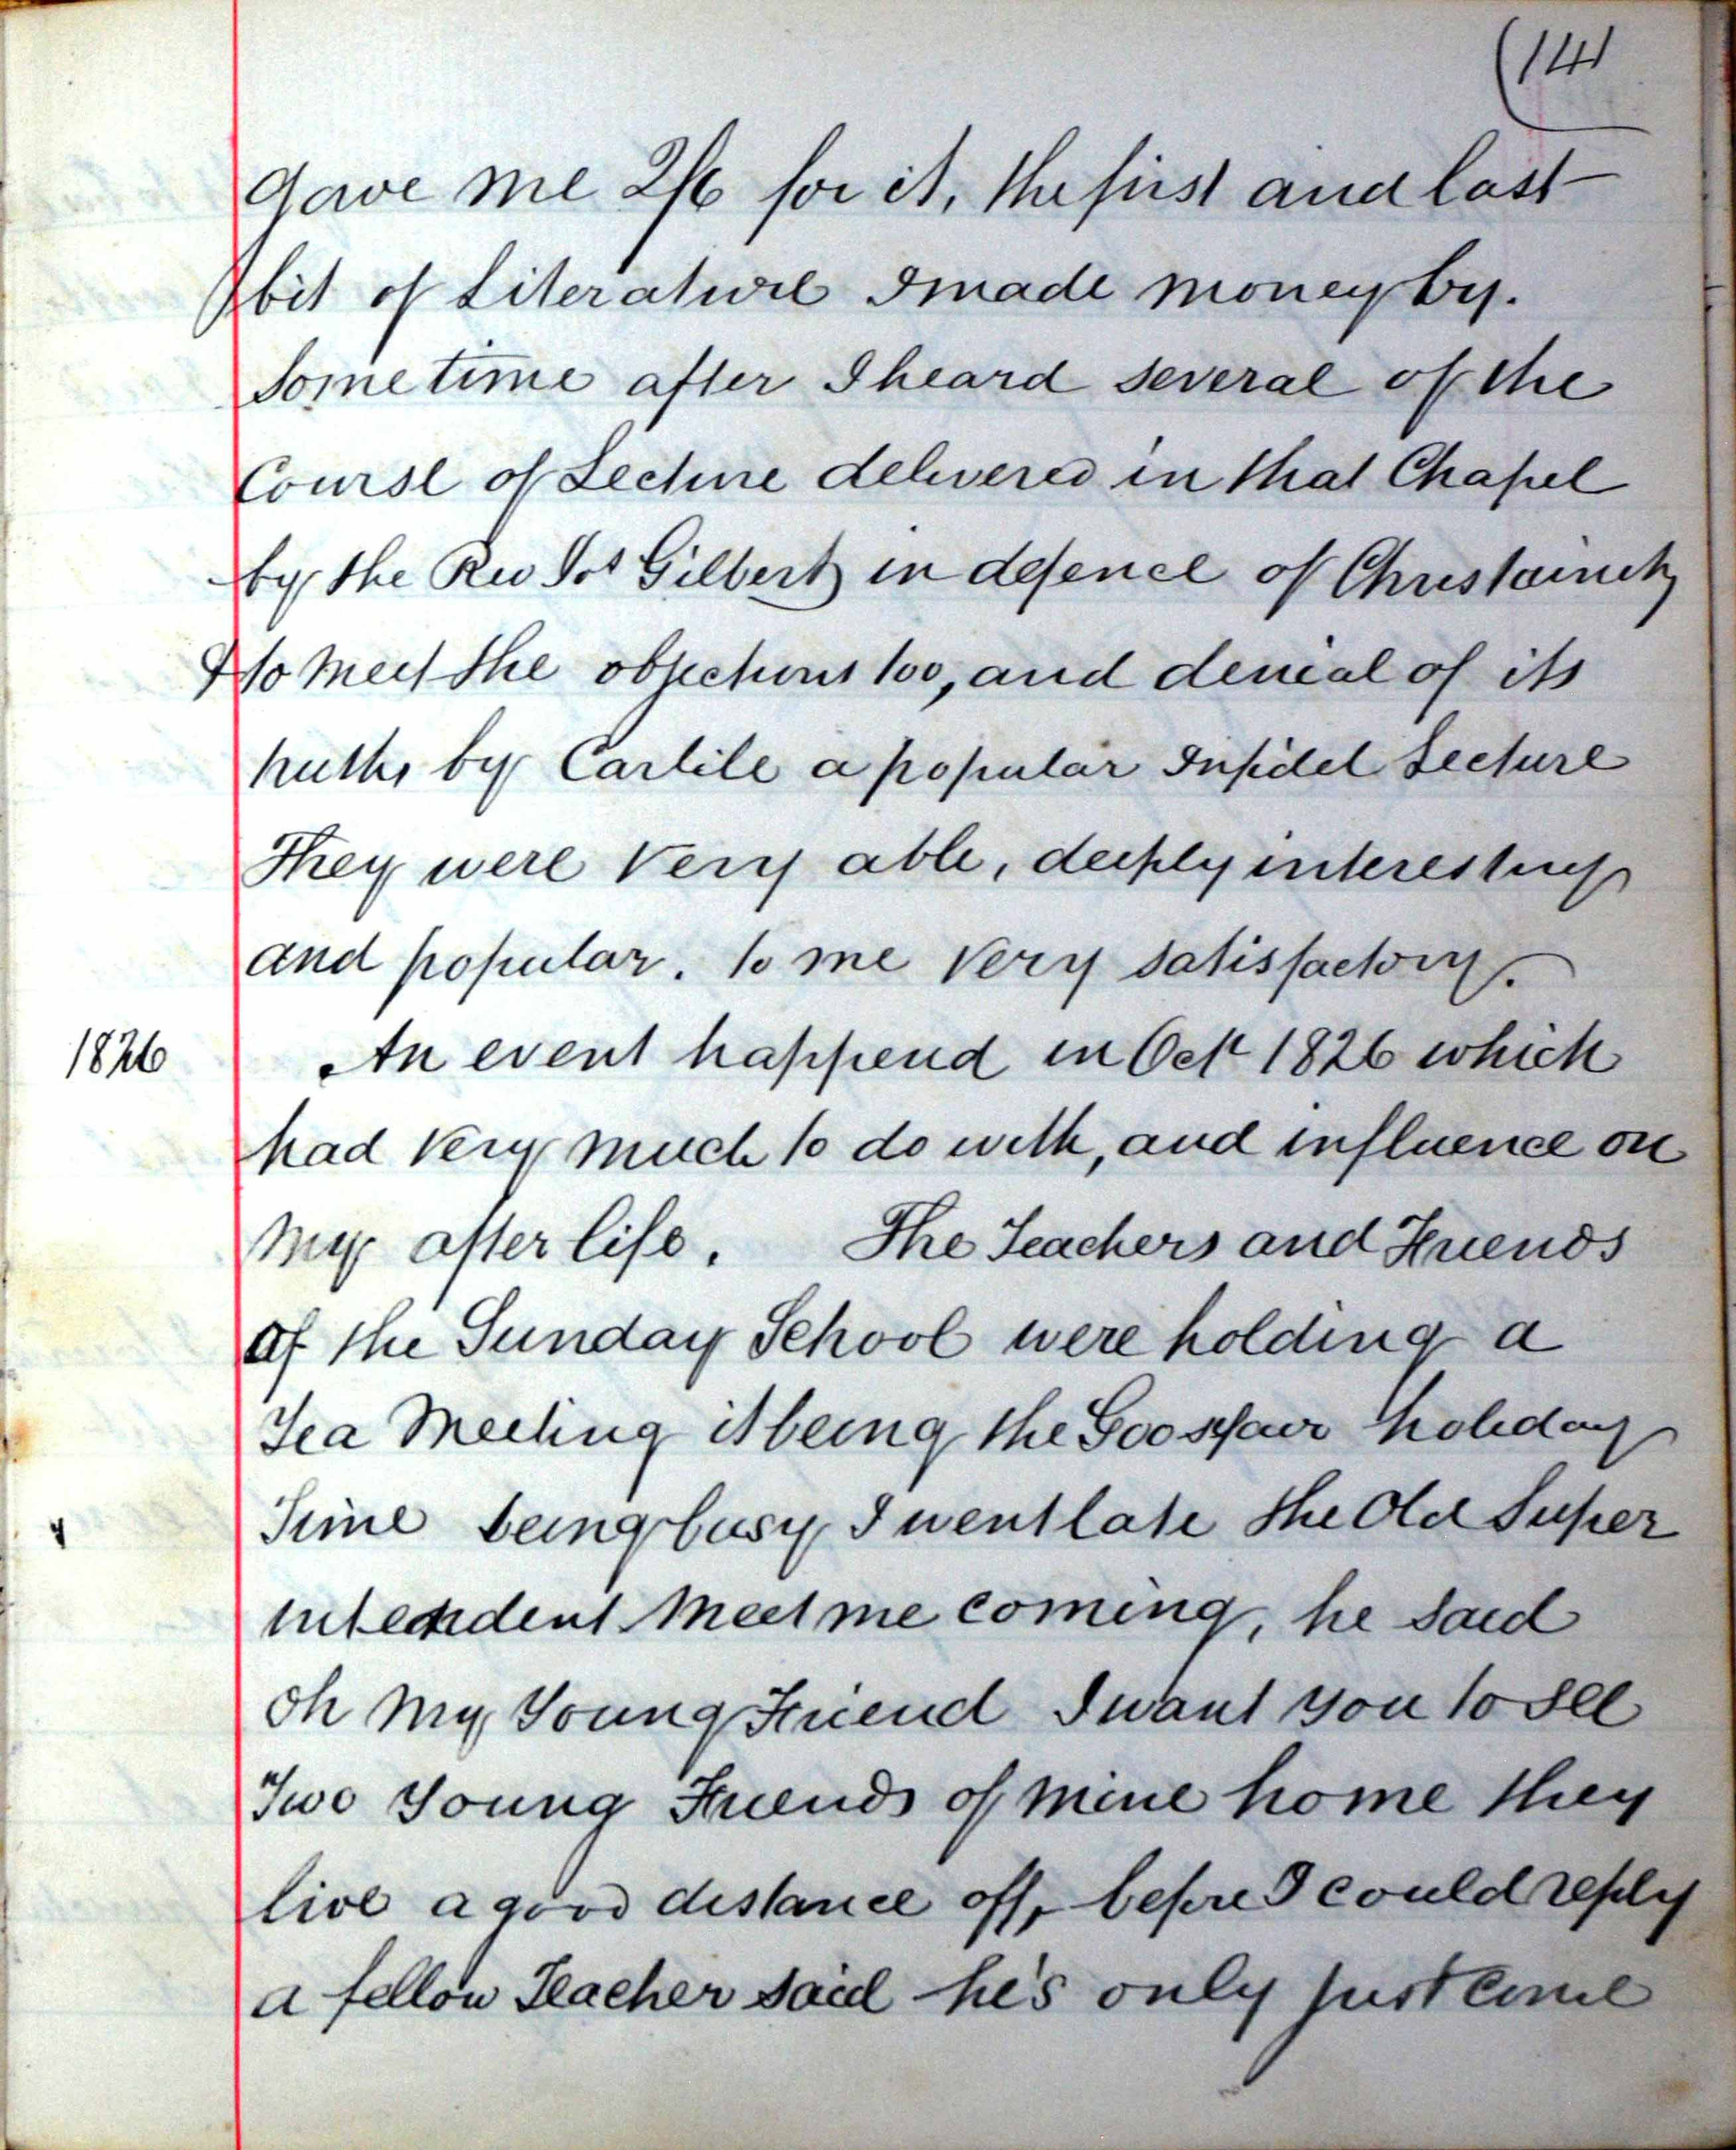 (14)
gave me 2/6 for it, the first and last
bit of Literature I made money by.
Sometime after I heard several of the
Course of Lecture delivered in that Chapel
by the Rev Jos Gilbert in defence of Christainity
& to meet the objections too, and denial of its
truths by Carlile a popular Infidel Lecture
They were very able, deeply interesting
and popular. to me very satisfactory.
1826
An event happend in Octr 1826 which
had very much to do with, and influence on
my after life. The Teachers and Friends
of the Sunday School were holding a
Tea Meeting it being the Goosefair holiday
Time being busy I went late the Old Super
intendent meet me coming, he said
oh my Young Friend I want you to see
Two Young Friends of mine home they
live a good distance off, before I could reply
a fellow Teacher said he's only just come